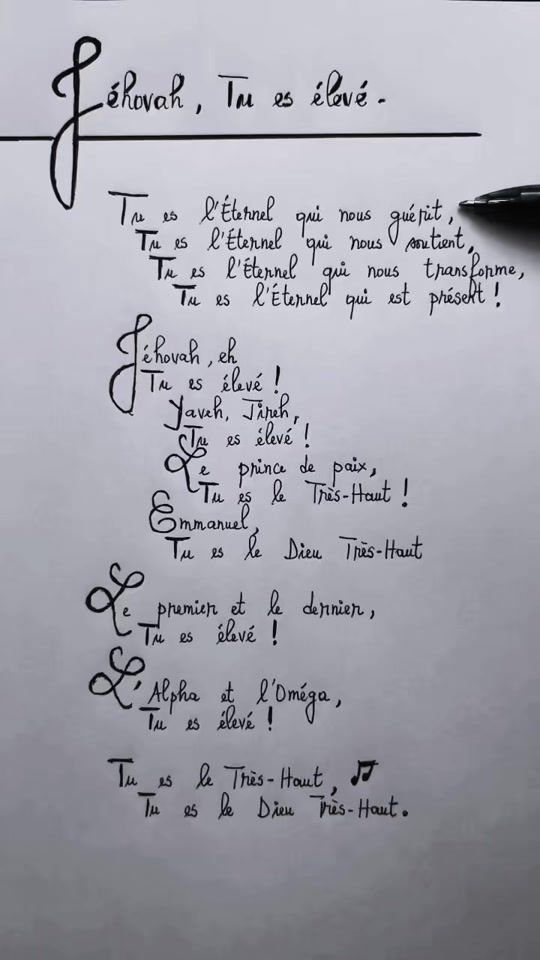 Jéhovah, Tu es élevé.
Tu es l'Éternel qui nous guérit,
Tu es l'Éternel qui nous soutient,
Tu es l'Éternel qui nous transforme,
Tu es l'Éternel qui est présent !
Jéhovah, eh
Tu es élevé !
Yaveh, Jireh,
Tu es élevé !
Le prince de paix,
Tu es le Très-Haut !
Emmanuel,
Tu es le Dieu Très-Haut
Le premier et le dernier,
Tu es élevé !
L'Alpha et l'Oméga,
Tu es élevé !
Tu es le Très-Haut, 🎵
Tu es le Dieu Très-Haut.